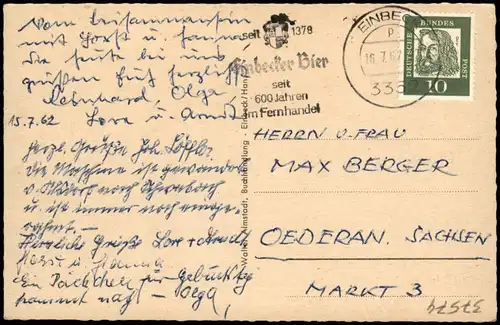 Vom Beisammensein
mit Horst u. Hanna
die heute bei uns
grüßen Euch herzlichst
Leonhard Olga,
15.7.62 Lore u. Arndt
Herzl. Grüße Joh. Löffler
die Maschine ist gewandert
v. nach
u. ist immer noch
Herzliche Grüße Lore + Arndt
Horst u. Hanna
Ein Päckchen für Geburtstag
kommt nach — Olga
seit 1378
Einbecker Bier
seit
600 Jahren
im Fernhandel
EINBECK
16.7.62
3352
DEUTSCHE BUNDESPOST
10
Walter Almstadt, Buchhandlung · Einbeck/Hann.
HERRN U. FRAU
MAX BERGER
OEDERAN. SACHSEN
MARKT 3
37574